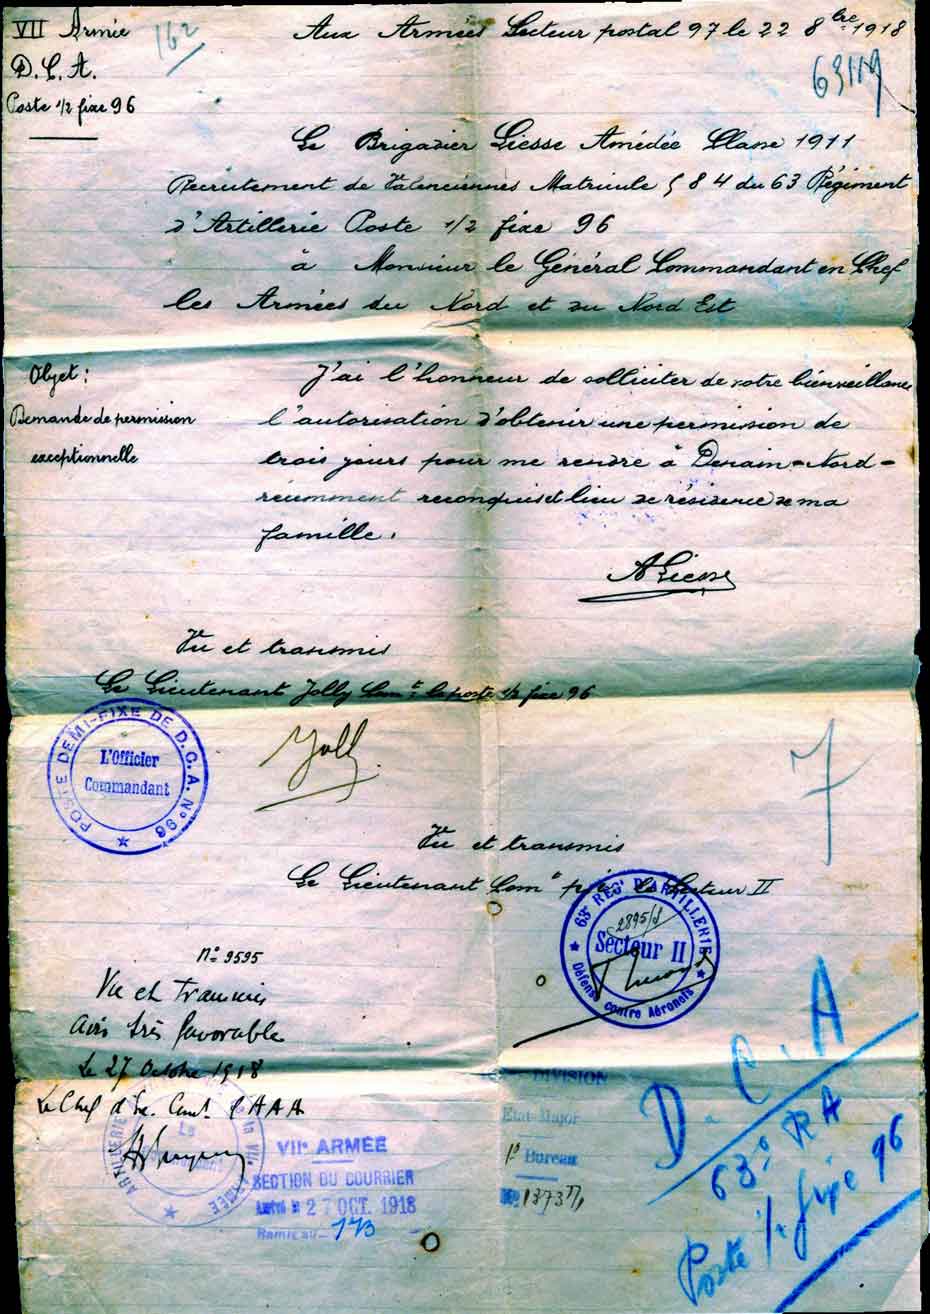 VII Armée
162
Aux Armées Secteur postal 97 le 22 8bre 1918
D.C.A.
Poste 1/2 fixe 96
Le Brigadier Liesse Amédée Classe 1911
Recrutement de Valenciennes Matricule 584 du 63 Régiment
d'Artillerie Poste 1/2 fixe 96
à Monsieur le Général Commandant en Chef
les Armées du Nord et du Nord Est
Objet :
Demande de permission
exceptionnelle
J'ai l'honneur de solliciter de votre bienveillance
l'autorisation d'obtenir une permission de
trois jours pour me rendre à Denain=Nord=
récemment reconquis et lieu de résidence de ma
famille.
A Liesse
Vu et transmis
Le Lieutenant Jolly Comt le poste 1/2 fixe 96
POSTE DEMI-FIXE DE D.C.A. N° 96
L'Officier
Commandant
Jolly
7
Vu et transmis
Le Lieutenant Comt le Secteur II
63e REGt D'ARTILLERIE
2895/
Secteur II
Défense contre Aéronefs
N° 9595
Vu et transmis
Avis très favorable
Le 27 Octobre 1918
Le Chef d'Es. Comt l'AAA
ARTILLERIE
Le
Commandant
ARMÉE
VIIe ARMÉE
SECTION DU COURRIER
Arrivé le 27 OCT. 1918
Remis au 1r B
DIVISION
Etat-Major
1r Bureau
No 1373
D.C.A
63e RA
Poste 1/2 fixe 96